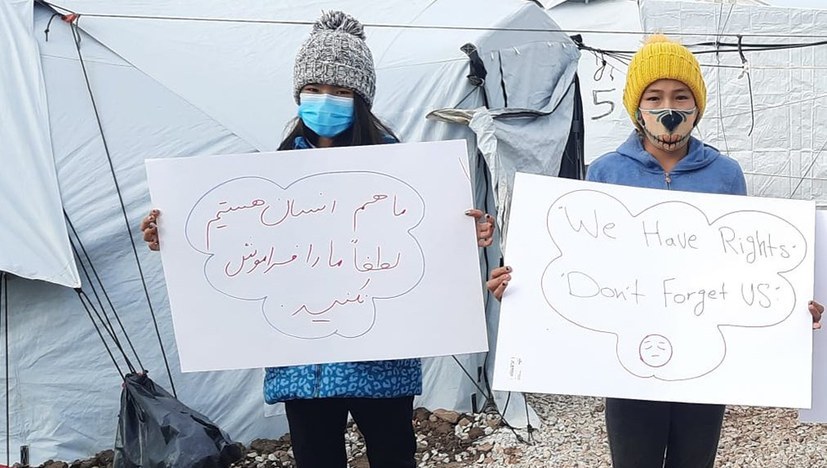 ما هم انسان هستیم
لطفاً ما را فراموش
نکنید.
"We Have Rights.
"Don't Forget US"
5